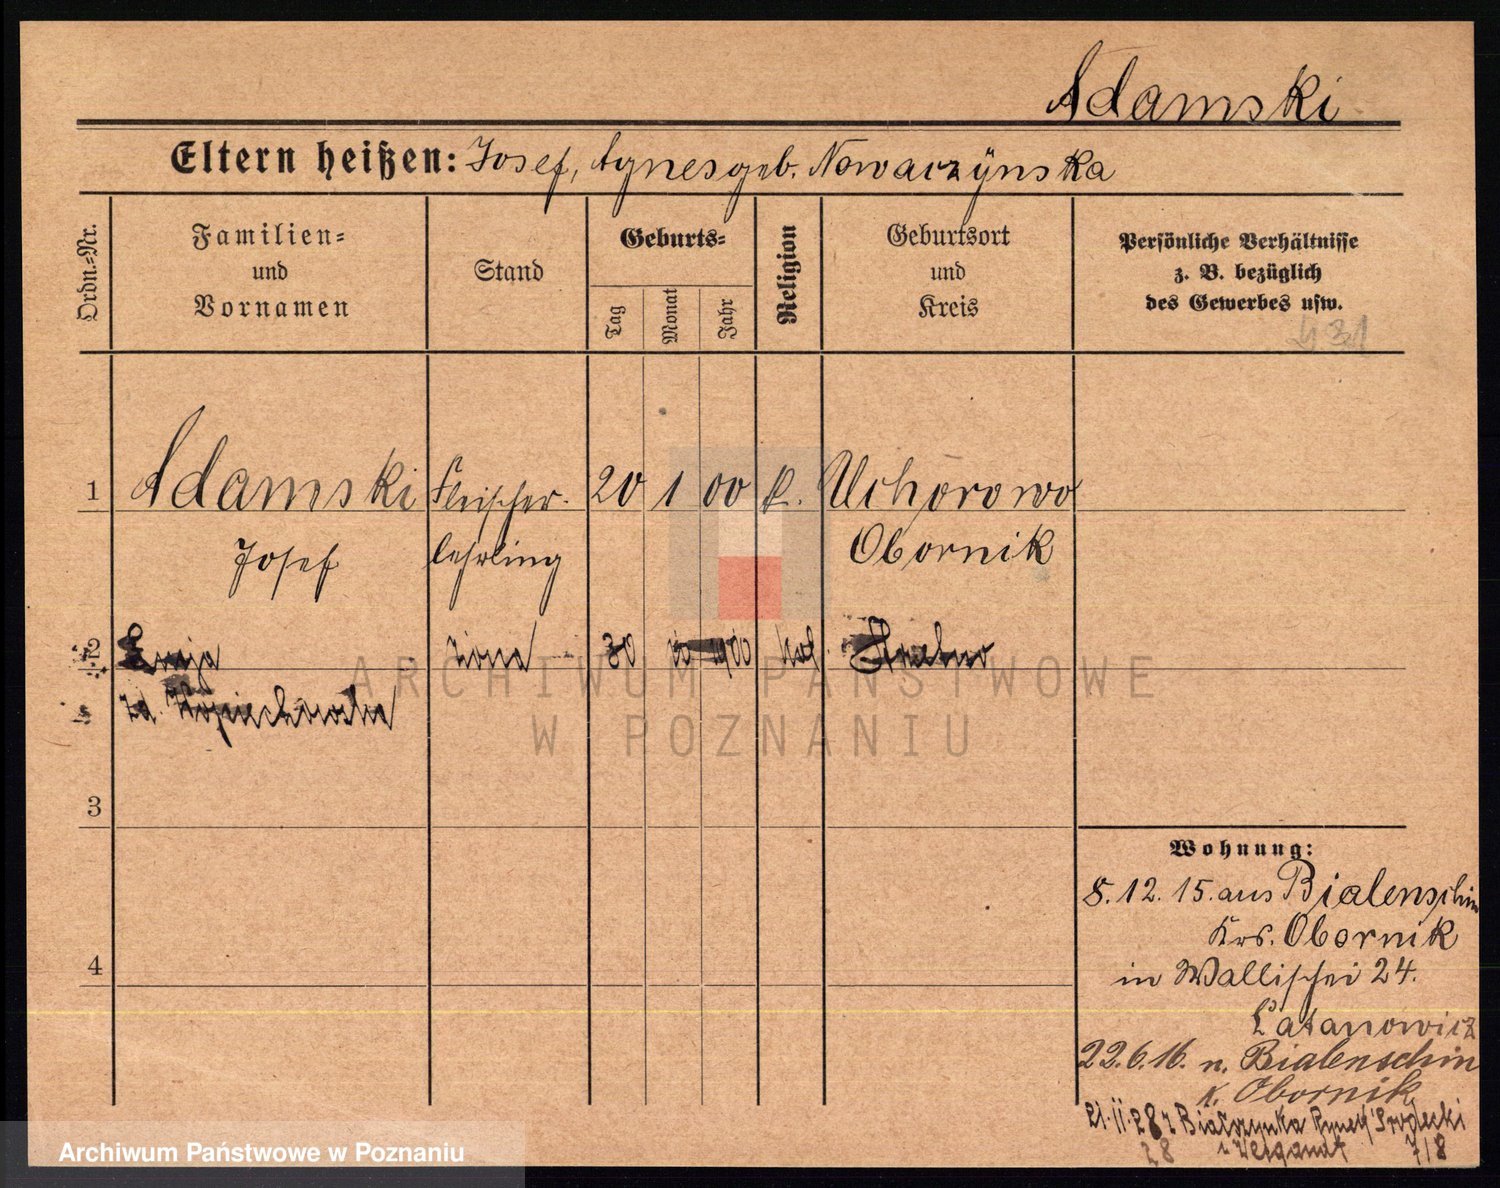 Adamski
Eltern heißen: Josef, Agnes geb. Nowarzÿnska
Ordn.-Nr.
Familien-
und
Vornamen
Stand
Geburts-
Tag
Monat
Jahr
Religion
Geburtsort
und
Kreis
Persönliche Verhältnisse
z. B. bezüglich
des Gewerbes usw.
1 Adamski Fleischer- 20 1 00 k. Uchorowo
Josef lehrling Obornik
2 żona 30 1900 kat
zd. Wojciechowska
3
4
Wohnung:
8.12.15. aus Bialenschin
Krs. Obornik
in Wallischei 24.
Latanowicz
22.6.16. n. Bialenschin
K. Obornik
21.11.28 z Białężynka Rynek Śródecki
28 Weigandt 7/8
ARCHIWUM PAŃSTWOWE
W POZNANIU
Archiwum Państwowe w Poznaniu